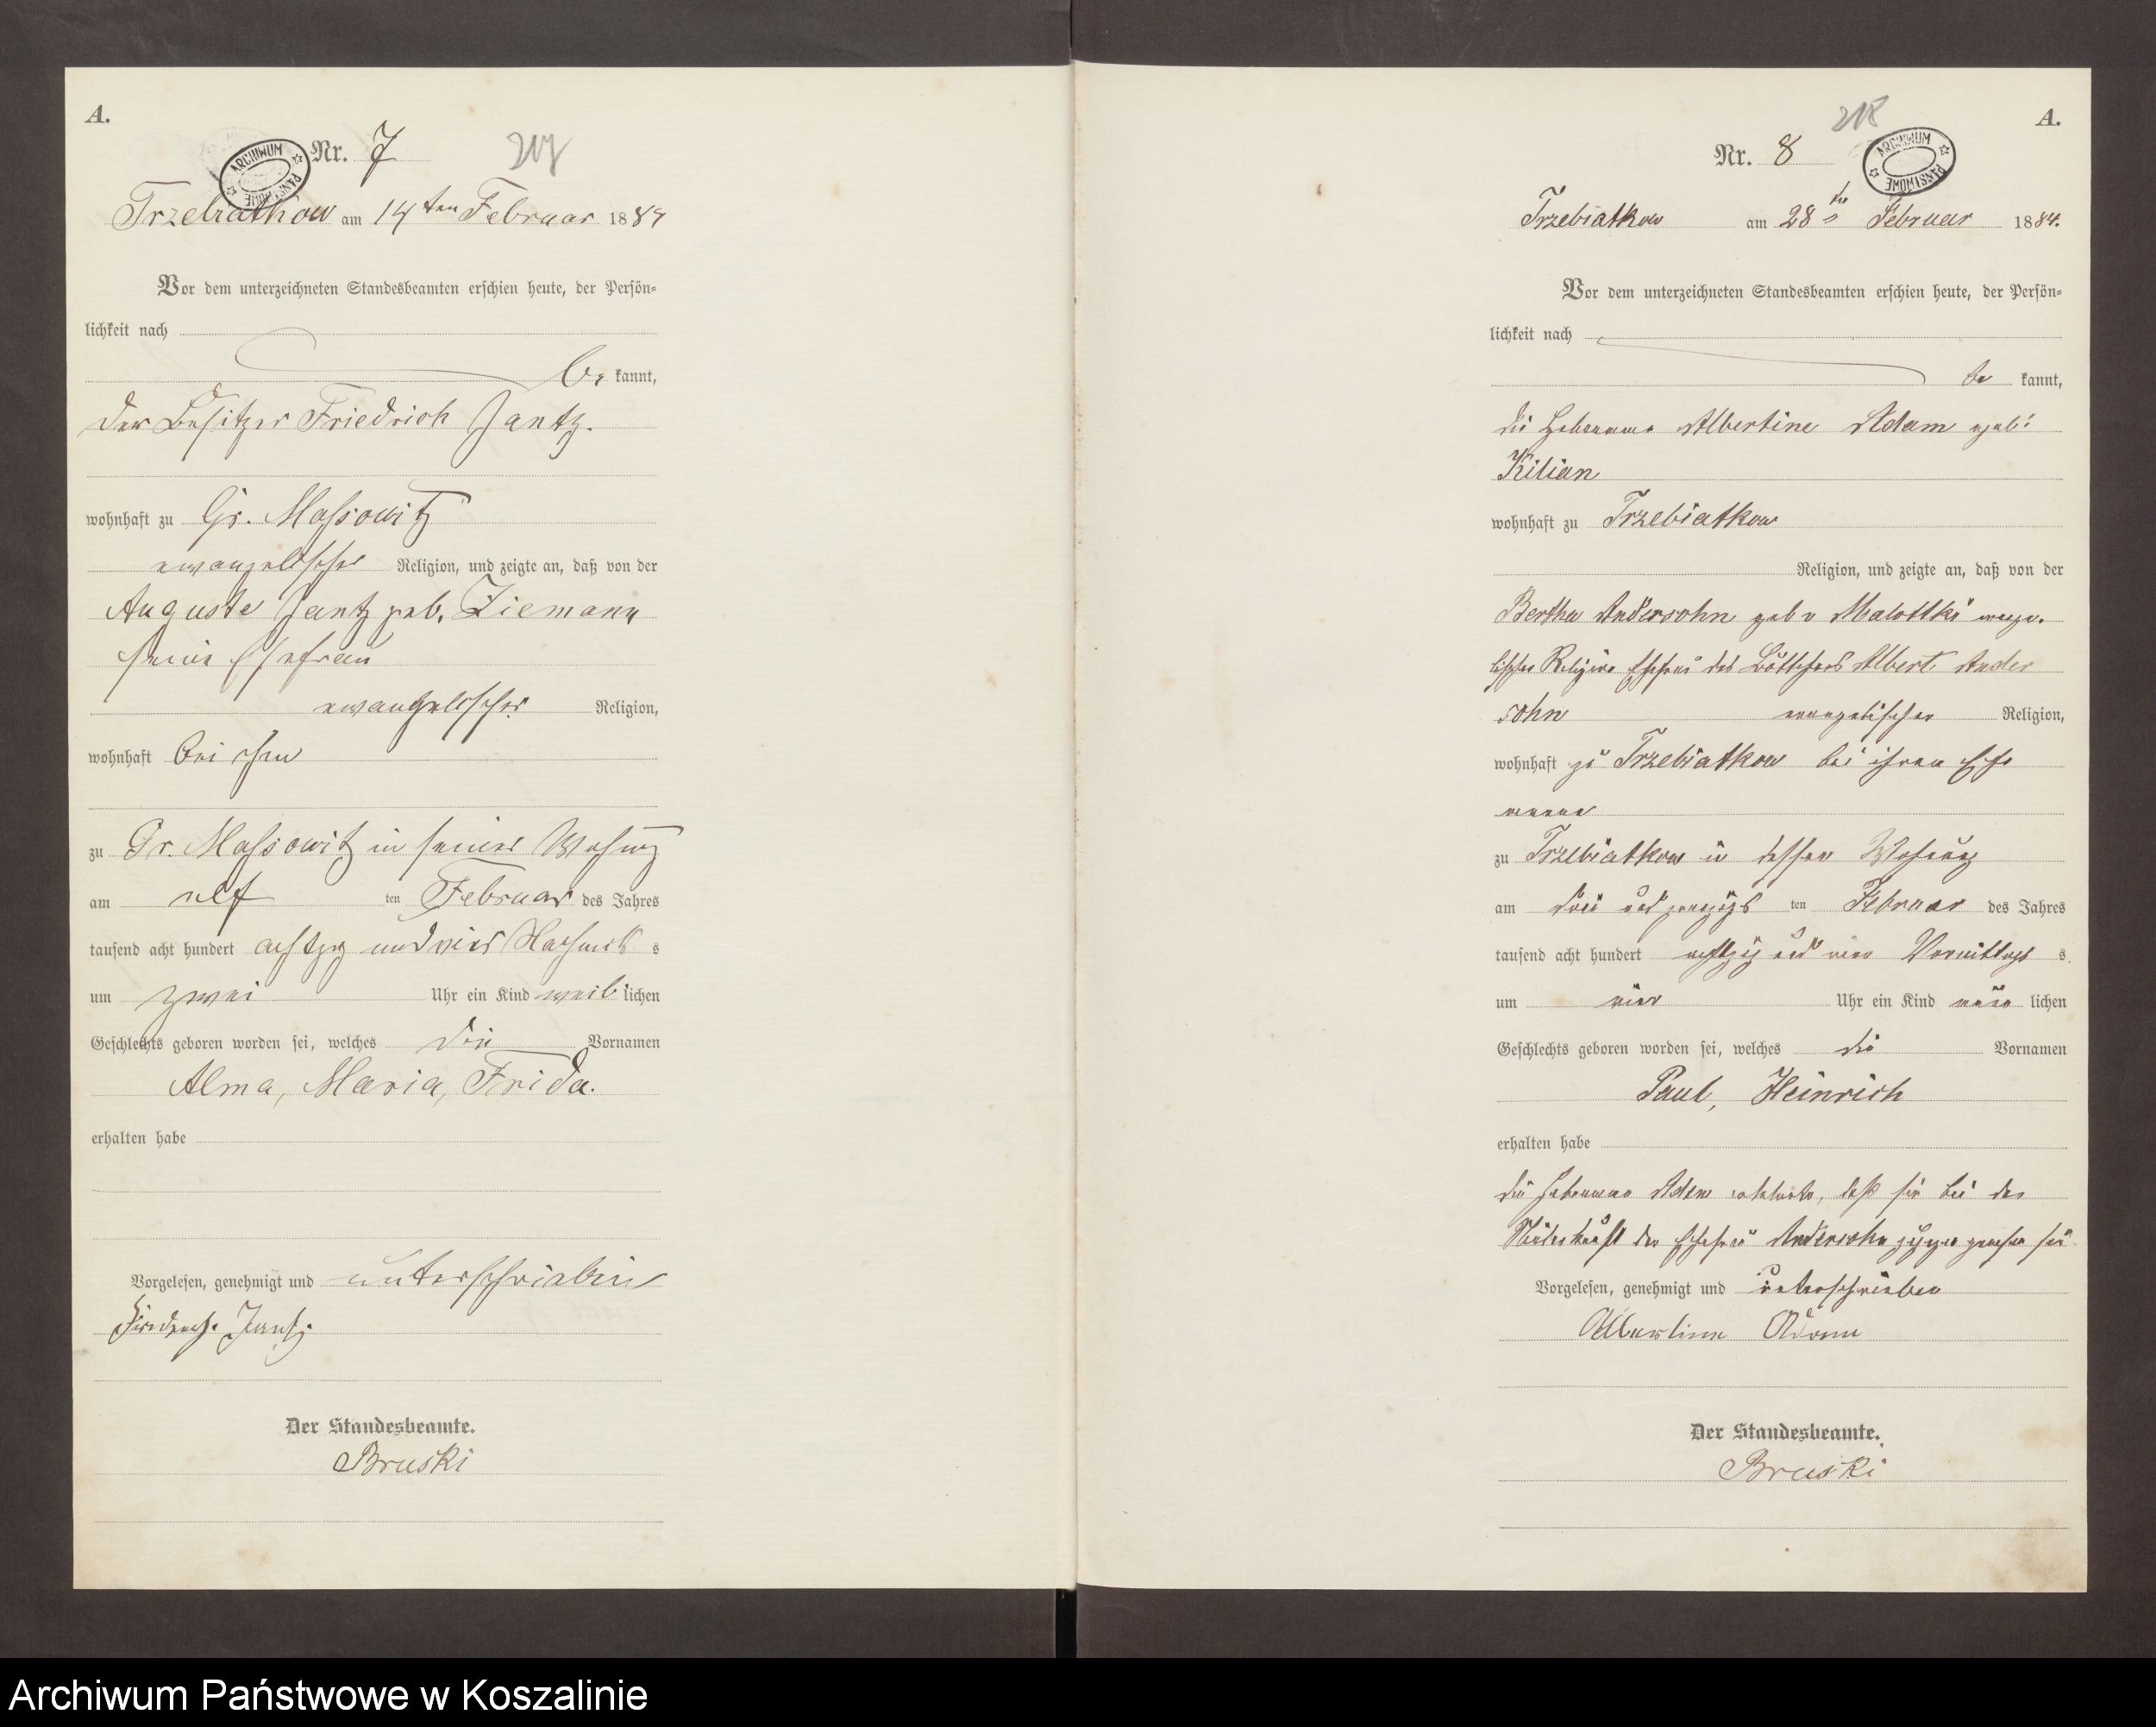 A.
Nr. 7
217
ARCHIWUM PAŃSTWOWE
Trzebiatkow am 14ten Februar 1884
Vor dem unterzeichneten Standesbeamten erschien heute, der Persön-
lichkeit nach
be kannt,
der Besitzer Friedrich Jantz.
wohnhaft zu Gr. Massowitz
evangelischer Religion, und zeigte an, daß von der
Auguste Jantz geb. Ziemann
seine Ehefrau
evangelischer Religion,
wohnhaft bei ihm
zu Gr. Massowitz in seiner Wohung
am elf ten Februar des Jahres
tausend acht hundert achtzig und vier Nachmitt s
um zwei Uhr ein Kind weib lichen
Geschlechts geboren worden sei, welches die Vornamen
Alma, Maria, Frida.
erhalten habe
Vorgelesen, genehmigt und unterschrieben
Friedrich Jantz
Der Standesbeamte.
Bruski
A.
218
Nr. 8
ARCHIWUM PAŃSTWOWE
Trzebiatkow am 28ten Februar 1884.
Vor dem unterzeichneten Standesbeamten erschien heute, der Persön-
lichkeit nach
be kannt,
die Hebamme Albertine Adam geb:
Kilian
wohnhaft zu Trzebiatkow
Religion, und zeigte an, daß von der
Bertha Andersohn geb v Malottki evange.
lischer Religion Ehefrau des Böttchers Albert Ander
sohn evangelischer Religion,
wohnhaft zu Trzebiatkow bei ihren Ehe
manne
zu Trzebiatkow in dessen Wohnung
am drei und zwanzigs ten Februar des Jahres
tausend acht hundert achtzig und vier Vormittags s
um vier Uhr ein Kind män lichen
Geschlechts geboren worden sei, welches die Vornamen
Paul, Heinrich
erhalten habe
die Hebamme Adam erklärte, daß sie bei der
Niederkunft der Ehefrau Andersohn zugegen gewesen sei
Vorgelesen, genehmigt und unterschrieben
Albertine Adam
Der Standesbeamte.
Bruski
Archiwum Państwowe w Koszalinie